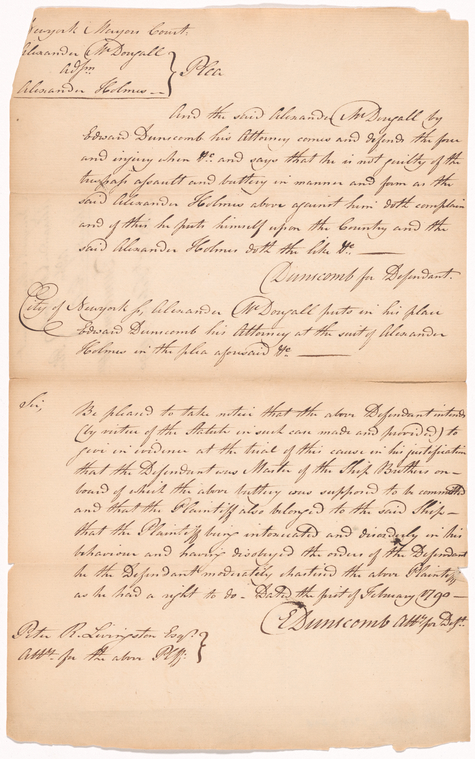 Newyork Mayors Court.
Alexander McDougall
adsm
Alexander Holmes
} Plea
And the said Alexander McDougall by
Edward Dunscomb his Attorney comes and defends the force
and injury when &c and says that he is not guilty of the
trespass assault and battery in manner and form as the
said Alexander Holmes above against him doth complain
and of this he puts himself upon the Country and the
said Alexander Holmes doth the like &c. —
Dunscomb for Defendant.
City of Newyork ss, Alexander McDougall puts in his place
Edward Dunscomb his Attorney at the suit of Alexander
Holmes in the plea aforesaid &c —
Sir,
Be pleased to take notice that the above Defendant intends
(by virtue of the Statute in such case made and provided) to
give in evidence at the trial of this cause in his justification
that the Defendant was Master of the Ship Brothers on-
board of which the above battery was supposed to be committed
and that the Plaintiff also belonged to the said Ship —
that the Plaintiff being intoxicated and disorderly in his
behaviour and having disobeyed the orders of the Defendant
he the Defendant moderately chastised the above Plaintiff
as he had a right to do - Dated the first of February 1790 —
E Dunscomb Atty. for Deft.
Peter R. Livingston Esqr.
Atty. for the above Plff. }